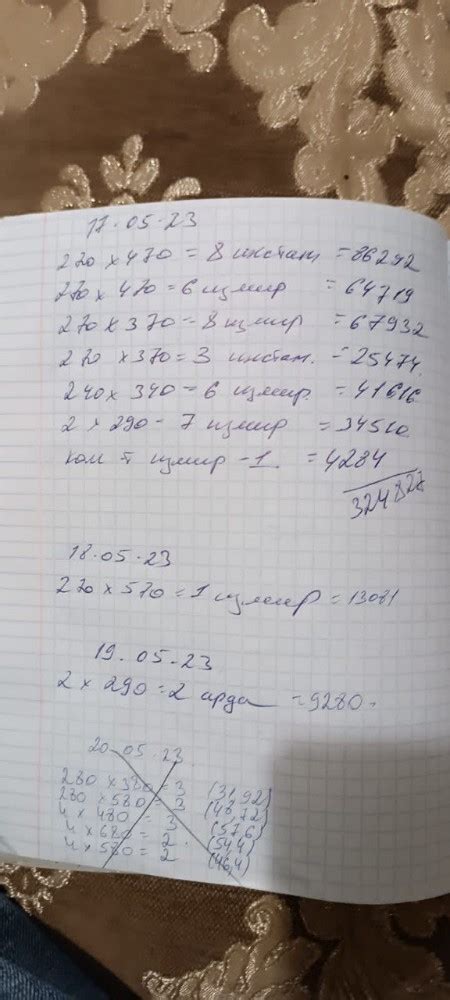 17.05.23
270 x 470 = 8 инстам = 86242
270 x 470 = 6 измир = 64719
270 x 370 - 8 измир = 67932
270 x 370 = 3 инстам. = 25474
240 x 340 - 6 измир = 41616
2 x 290 - 7 измир = 34510
ком т измир - 1 = 4284
324827
18.05.23
270 x 570 = 1 измир = 13081
19.05.23
2 x 290 = 2 арда = 9280
20.05.23
280 x 380 = 3 (31,92)
280 x 580 = 3 (48,72)
4 x 480 = 3 (57,6)
4 x 680 = 2 (54,4)
4 x 580 = 2 (46,4)